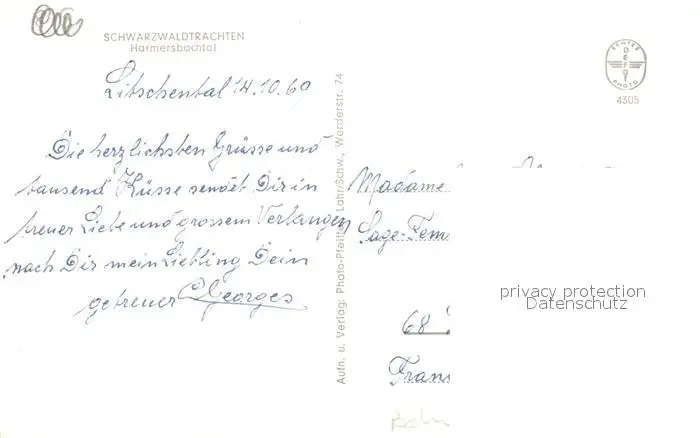 SCHWARZWALDTRACHTEN
Harmersbachtal
Litschental 14.10.60
Die herzlichsten Grüsse und
tausend Küsse sendet Dir in
treuer Liebe und grossem Verlangen
nach Dir mein Liebling Dein
getreuer Georges
Aufn. u. Verlag: Photo-Pfeiffer, Lahr/Schw., Werderstr. 74
ECHTES
DEFOT
PHOTO
4305
Madame
Sage-Fem
68
Fran
privacy protection
Datenschutz